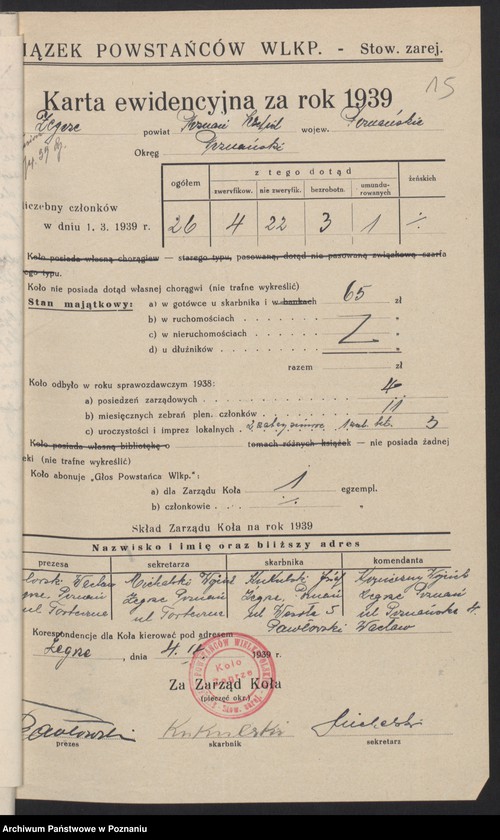 IĄZEK POWSTAŃCÓW WLKP. - Stow. zarej.
15
Karta ewidencyjna za rok 1939
Żegrze powiat Poznań wojew. Poznańskie
Okręg Poznański
ogółem
z tego dotąd
zweryfikow. nie zweryfik. bezrobotn. umundurowanych żeńskich
iczebny członków
w dniu 1. 3. 1939 r. 26 4 22 3 1 ·/·
Koło posiada własną chorągiew — starego typu, pasowaną, dotąd nie pasowaną związkową czarfa
ego typu.
Koło nie posiada dotąd własnej chorągwi (nie trafne wykreślić)
Stan majątkowy: a) w gotówce u skarbnika i w bankach 65 zł
b) w ruchomościach . . . . . . . "
c) w nieruchomościach . . . . . . "
d) u dłużników . . . . . . . . "
razem zł
Koło odbyło w roku sprawozdawczym 1938:
a) posiedzeń zarządowych . . . . . . 4
b) miesięcznych zebrań plen. członków . . . . . 11
c) uroczystości i imprez lokalnych . 3
Koło posiada własną bibliotekę o tematach różnych książek — nie posiada żadnej
eki (nie trafne wykreślić)
Koło abonuje „Głos Powstańca Wlkp.":
a) dla Zarządu Koła 1 egzempl.
b) członkowie . . . ·/· "
Skład Zarządu Koła na rok 1939
Nazwisko i imię oraz bliższy adres
prezesa sekretarza skarbnika komendanta
Wacław Michalski Kukulski Józef
Poznań Żegrze Poznań Żegrze, Poznań Żegrze Poznań
ul ul ul ul Poznańska
Pawłowski Wacław
Korespondencje dla Koła kierować pod adresem
Żegrze, dnia 1939 r.
POWSTAŃCÓW WIELKOPOLSKICH
Koło
Żegrze
Stow. zarej.
Za Zarząd Koła
(pieczęć okr.)
Pawłowski Kukulski Michalski
prezes skarbnik sekretarz
Archiwum Państwowe w Poznaniu